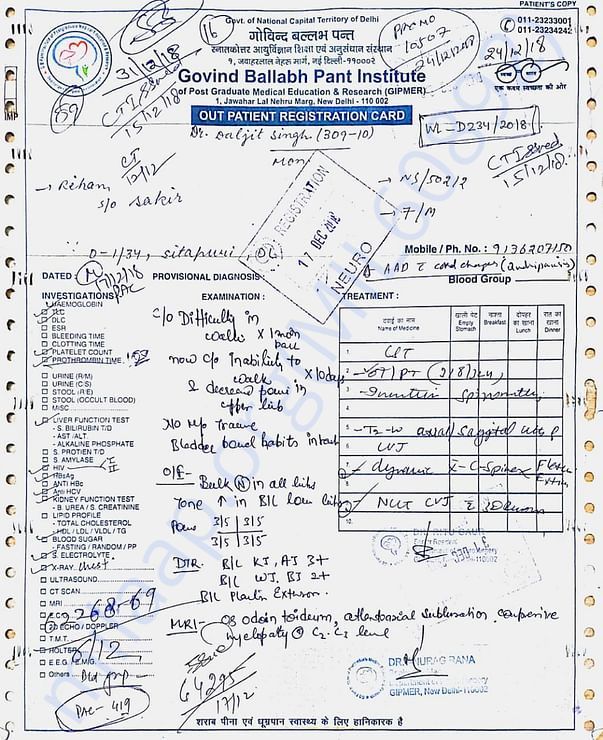 PATIENT'S COPY
Govt. of National Capital Territory of Delhi
गोविन्द बल्लभ पन्त
स्नातकोत्तर आयुर्विज्ञान शिक्षा एवं अनुसंधान संस्थान
१, जवाहरलाल नेहरू मार्ग, नई दिल्ली-११०००२
Govind Ballabh Pant Institute
of Post Graduate Medical Education & Research (GIPMER)
1, Jawahar Lal Nehru Marg, New Delhi - 110 002
OUT PATIENT REGISTRATION CARD
011-23233001
011-23234242
एक कदम स्वच्छता की ओर
16
31/12/18
15/12/18
24/12/18
10507
24/12/18
WL-D234/2018
15/12/18
Dr. Daljit Singh (309-10)
CT
12/12
Mon
Riham
S/o Sakir
NS/50212
7/M
REGISTRATION
17 DEC 2018
NEURO
0-1/34, sitapuri,
Mobile / Ph. No. : 9136207150
DATED 17/12/18
PAC
PROVISIONAL DIAGNOSIS
AAD c cord changes
Blood Group
INVESTIGATIONS
EXAMINATION :
TREATMENT :
HAEMOGLOBIN
TLC
DLC
ESR
BLEEDING TIME
CLOTTING TIME
PLATELET COUNT
PROTHROMBIN TIME
URINE (R/M)
URINE (C/S)
STOOL (R/E)
STOOL (OCCULT BLOOD)
MISC
LIVER FUNCTION TEST
- S. BILIRUBIN T/D
- AST /ALT.
- ALKALINE PHOSPHATE
S. PROTIEN T/D
S. AMYLASE
HIV
HBsAg
ANTI HBc
Anti HCV
KIDNEY FUNCTION TEST
- B. UREA / S. CREATININE
LIPID PROFILE
- TOTAL CHOLESTEROL
- HDL / LDL / VLDL / TG
BLOOD SUGAR
- FASTING / RANDOM / PP
S. ELECTROLYTE
X-RAY Chest
ULTRASOUND
CT SCAN
MRI
E.C.G.
2D ECHO / DOPPLER
T.M.T.
HOLTER
E.E.G. / E.M.G.
Others Bld grp
268-69
6/12
PAC-419
c/o Difficulty in
walk x 1 month
back
now c/o Inability to
walk x 10 days
& decreased power in
upper limb
No H/o Trauma
Bladder bowel habits intact
O/E - Bulk (N) in all limbs
Tone ↑ in B/L lower limbs
Power 3/5 | 3/5
3/5 | 3/5
DTR. B/L KJ, AJ 3+
B/L WJ, BJ 2+
B/L Plantar Extensor.
MRI - os odontoideum, atlantoaxial subluxation, compressive
myelopathy @ C2-C3 level
64295
17/12
दवाई का नाम
Name of Medicine
खाली पेट
Empty Stomach
नाश्ता
Breakfast
दोपहर का खाना
Lunch
रात का खाना
Dinner
1.
2.
3.
4.
5.
6.
7.
8.
9.
10.
Spirometry
T2-W axial Sagittal
CVJ
dynamic X-C-Spine
NCCT CVJ c 3D Recons
DR. ANURAG RANA
GIPMER, New Delhi-110002
शराब पीना एवं धूम्रपान स्वास्थ्य के लिए हानिकारक है